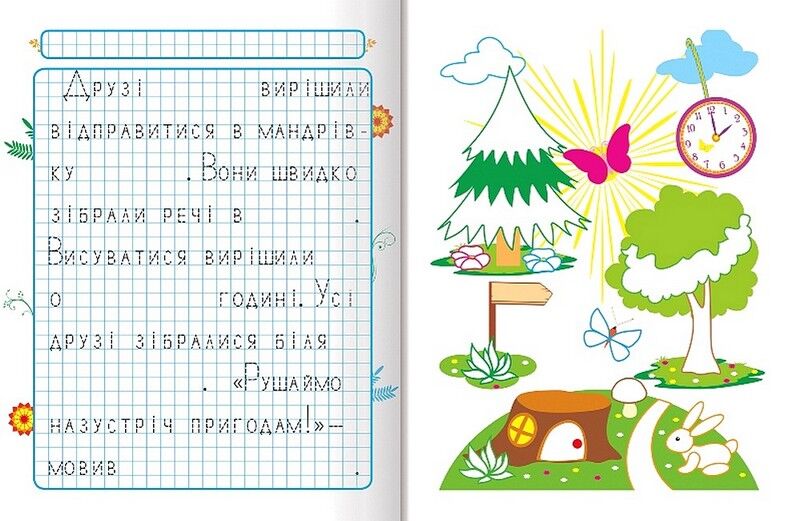 Друзі вирішили
відправитися в мандрів-
ку . Вони швидко
зібрали речі в .
Висуватися вирішили
о годині. Усі
друзі зібралися біля
. «Рушаймо
назустріч пригодам!» —
мовив .
12
1
2
3
4
5
6
7
8
9
10
11